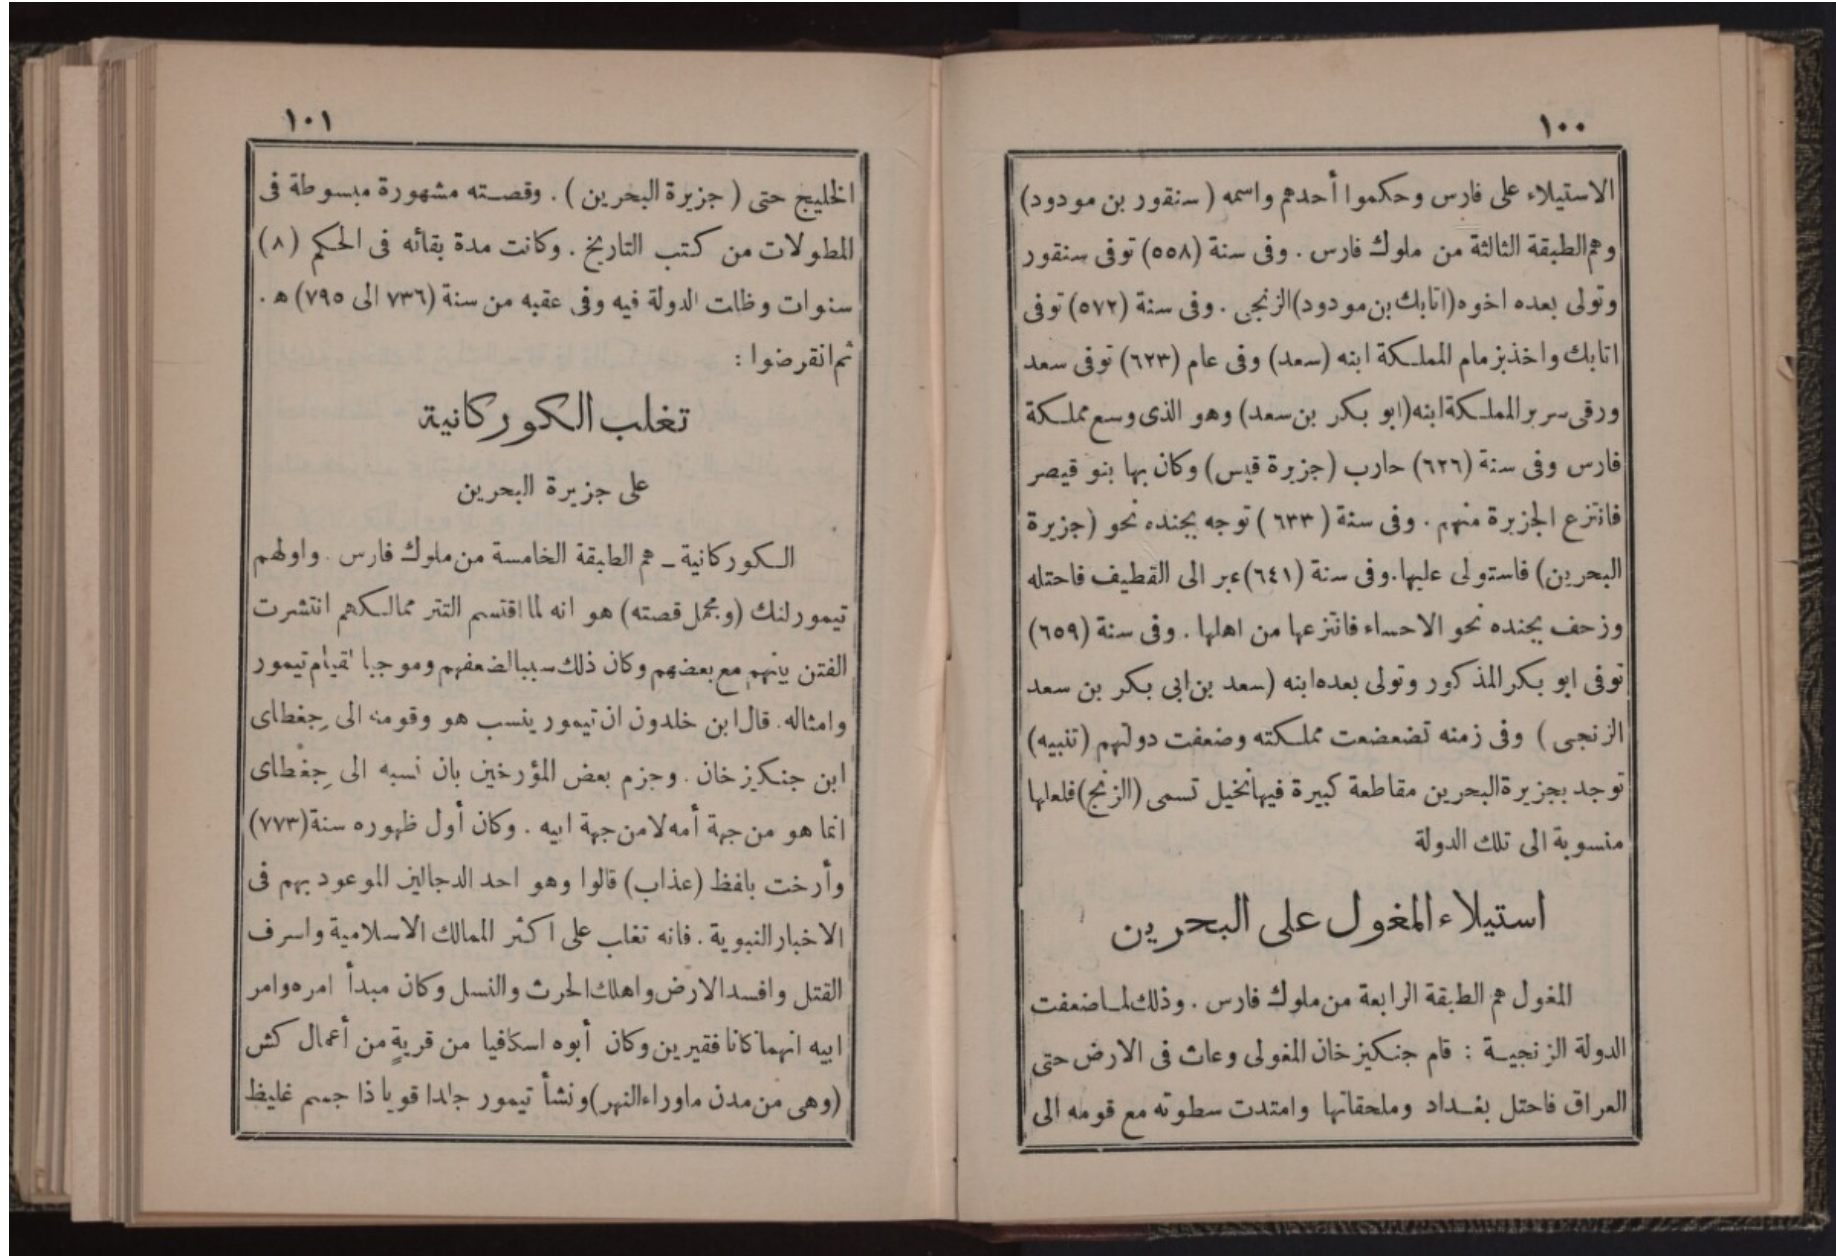 ١٠٠
الاستيلاء على فارس وحكموا أحدهم واسمه (سنقور بن مودود)
وهم الطبقة الثالثة من ملوك فارس . وفى سنة (٥٥٨) توفى سنقور
وتولى بعده اخوه (اتابك بن مودود) الزنجى . وفى سنة (٥٧٢) توفى
اتابك واخذ بزمام المملكة ابنه (سعد) وفى عام (٦٢٣) توفى سعد
ورقى سرير المملكة ابنه (ابو بكر بن سعد) وهو الذى وسع مملكة
فارس وفى سنة (٦٢٦) حارب (جزيرة قيس) وكان بها بنو قيصر
فانتزع الجزيرة منهم . وفى سنة (٦٣٣) توجه بجنده نحو (جزيرة
البحرين) فاستولى عليها . وفى سنة (٦٤١) عبر الى القطيف فاحتله
وزحف بجنده نحو الاحساء فانتزعها من اهلها . وفى سنة (٦٥٩)
توفى ابو بكر المذكور وتولى بعده ابنه (سعد بن ابى بكر بن سعد
الزنجى ) وفى زمنه تضعضعت مملكته وضعفت دولتهم (تنبيه)
توجد بجزيرة البحرين مقاطعة كبيرة فيها نخيل تسمى (الزنج) فلعلها
منسوبة الى تلك الدولة
استيلاء المغول على البحرين
المغول هم الطبقة الرابعة من ملوك فارس . وذلك لما ضعفت
الدولة الزنجية : قام جنكيز خان المغولى وعاث فى الارض حتى
العراق فاحتل بغداد وملحقاتها وامتدت سطوته مع قومه الى
١٠١
الخليج حتى ( جزيرة البحرين ) . وقصته مشهورة مبسوطة فى
المطولات من كتب التاريخ . وكانت مدة بقائه فى الحكم (٨)
سنوات وظلت الدولة فيه وفى عقبه من سنة (٧٣٦ الى ٧٩٥) ه .
ثم انقرضوا :
تغلب الكوركانية
على جزيرة البحرين
الكوركانية ـ هم الطبقة الخامسة من ملوك فارس . واولهم
تيمورلنك (ومجمل قصته) هو انه لما اقتسم التتر ممالكهم انتشرت
الفتن بينهم مع بعضهم وكان ذلك سببا لضعفهم وموجبا لقيام تيمور
وامثاله . قال ابن خلدون ان تيمور ينسب هو وقومه الى جِغطاى
ابن جنكيز خان . وجزم بعض المؤرخين بان نسبه الى جِغطاى
انما هو من جهة أمه لا من جهة ابيه . وكان أول ظهوره سنة (٧٧٣)
وأرخت بلفظ (عذاب) قالوا وهو احد الدجالين الموعود بهم فى
الاخبار النبوية . فانه تغلب على اكثر الممالك الاسلامية واسرف
القتل وافسد الارض واهلك الحرث والنسل وكان مبدأ امره وامر
ابيه انهما كانا فقيرين وكان أبوه اسكافيا من قريةٍ من أعمال كش
(وهى من مدن ماوراء النهر) ونشأ تيمور جلدا قويا ذا جسم غليظ